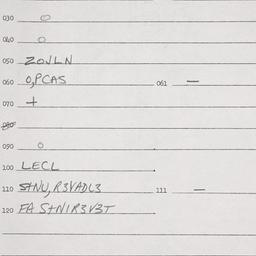 030 O
040 O
050 ZOJLN
060 O,PCAS 061 —
070 +
080
090 O
100 LECL
110 StNU,R3VADL3 111 —
120 FA StN1R3V3T